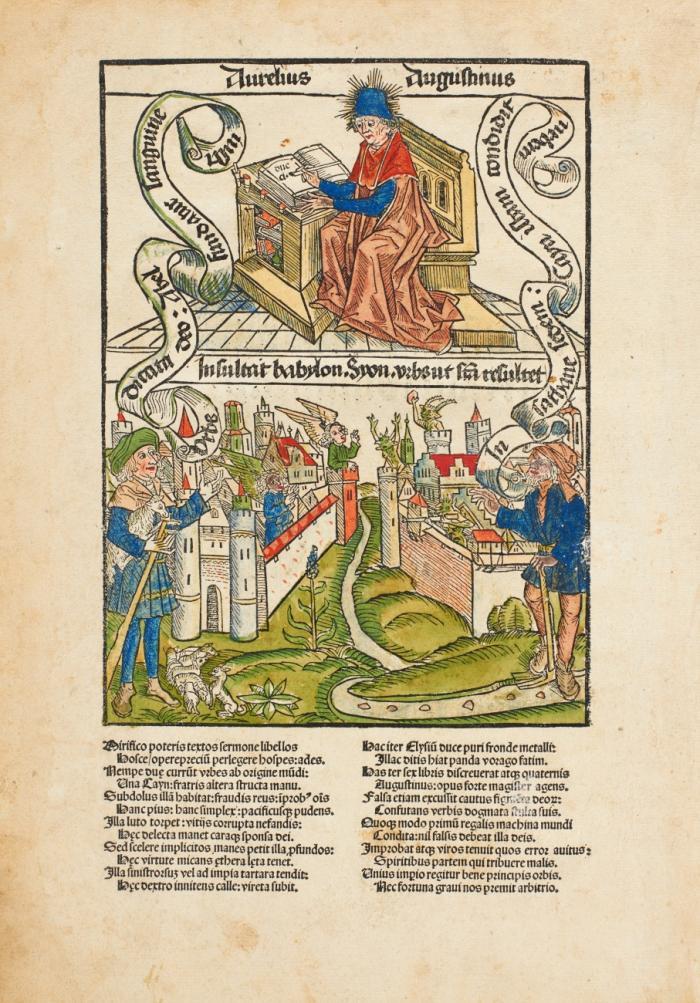 Aurelius Augustinus
Vrbs dicata deo: Abel fundatur sanguine
In sathane sedem: Cayn istam condidit vrbem
Insultat babylon. Syon. vrbs vt sca resultet
duc
Mirifico poteris textos sermone libellos
Hosce/ operepreciū perlegere hospes: ades.
Nempe due currūt vrbes ab origine mūdi:
Una Cayn: fratris altera structa manu.
Subdolus illā habitat: fraudis reus: īprob⁹ oīs
Hanc pius: hanc simplex: pacificusqꝫ pudens.
Illa luto torpet: vitijs corrupta nefandis:
Hec delecta manet caraqꝫ sponsa dei.
Sed scelere implicitos manes petit illa, pfundos:
Hec virtute micans ethera leta tenet.
Illa sinistrorsuꝫ vel ad impia tartara tendit:
Hec dextro innitens calle: vireta subit.
Hac iter Elysiū duce puri fronde metalli:
Illac ditis hiat panda vorago fatim.
Has ter sex libris discreuerat atqꝫ quaternis
Augustinus: opus forte magister agens.
Falsa etiam excussit cautus figmēta deoꝝ:
Confutans verbis dogmata stulta suis.
Quoqꝫ modo primū regalis machina mundi
Condita: nil falsis debeat illa deis.
Improbat atqꝫ viros tenuit quos error auitus:
Spiritibus partem qui tribuere malis.
Unius impio regitur bene principis orbis.
Nec fortuna graui nos premit arbitrio.